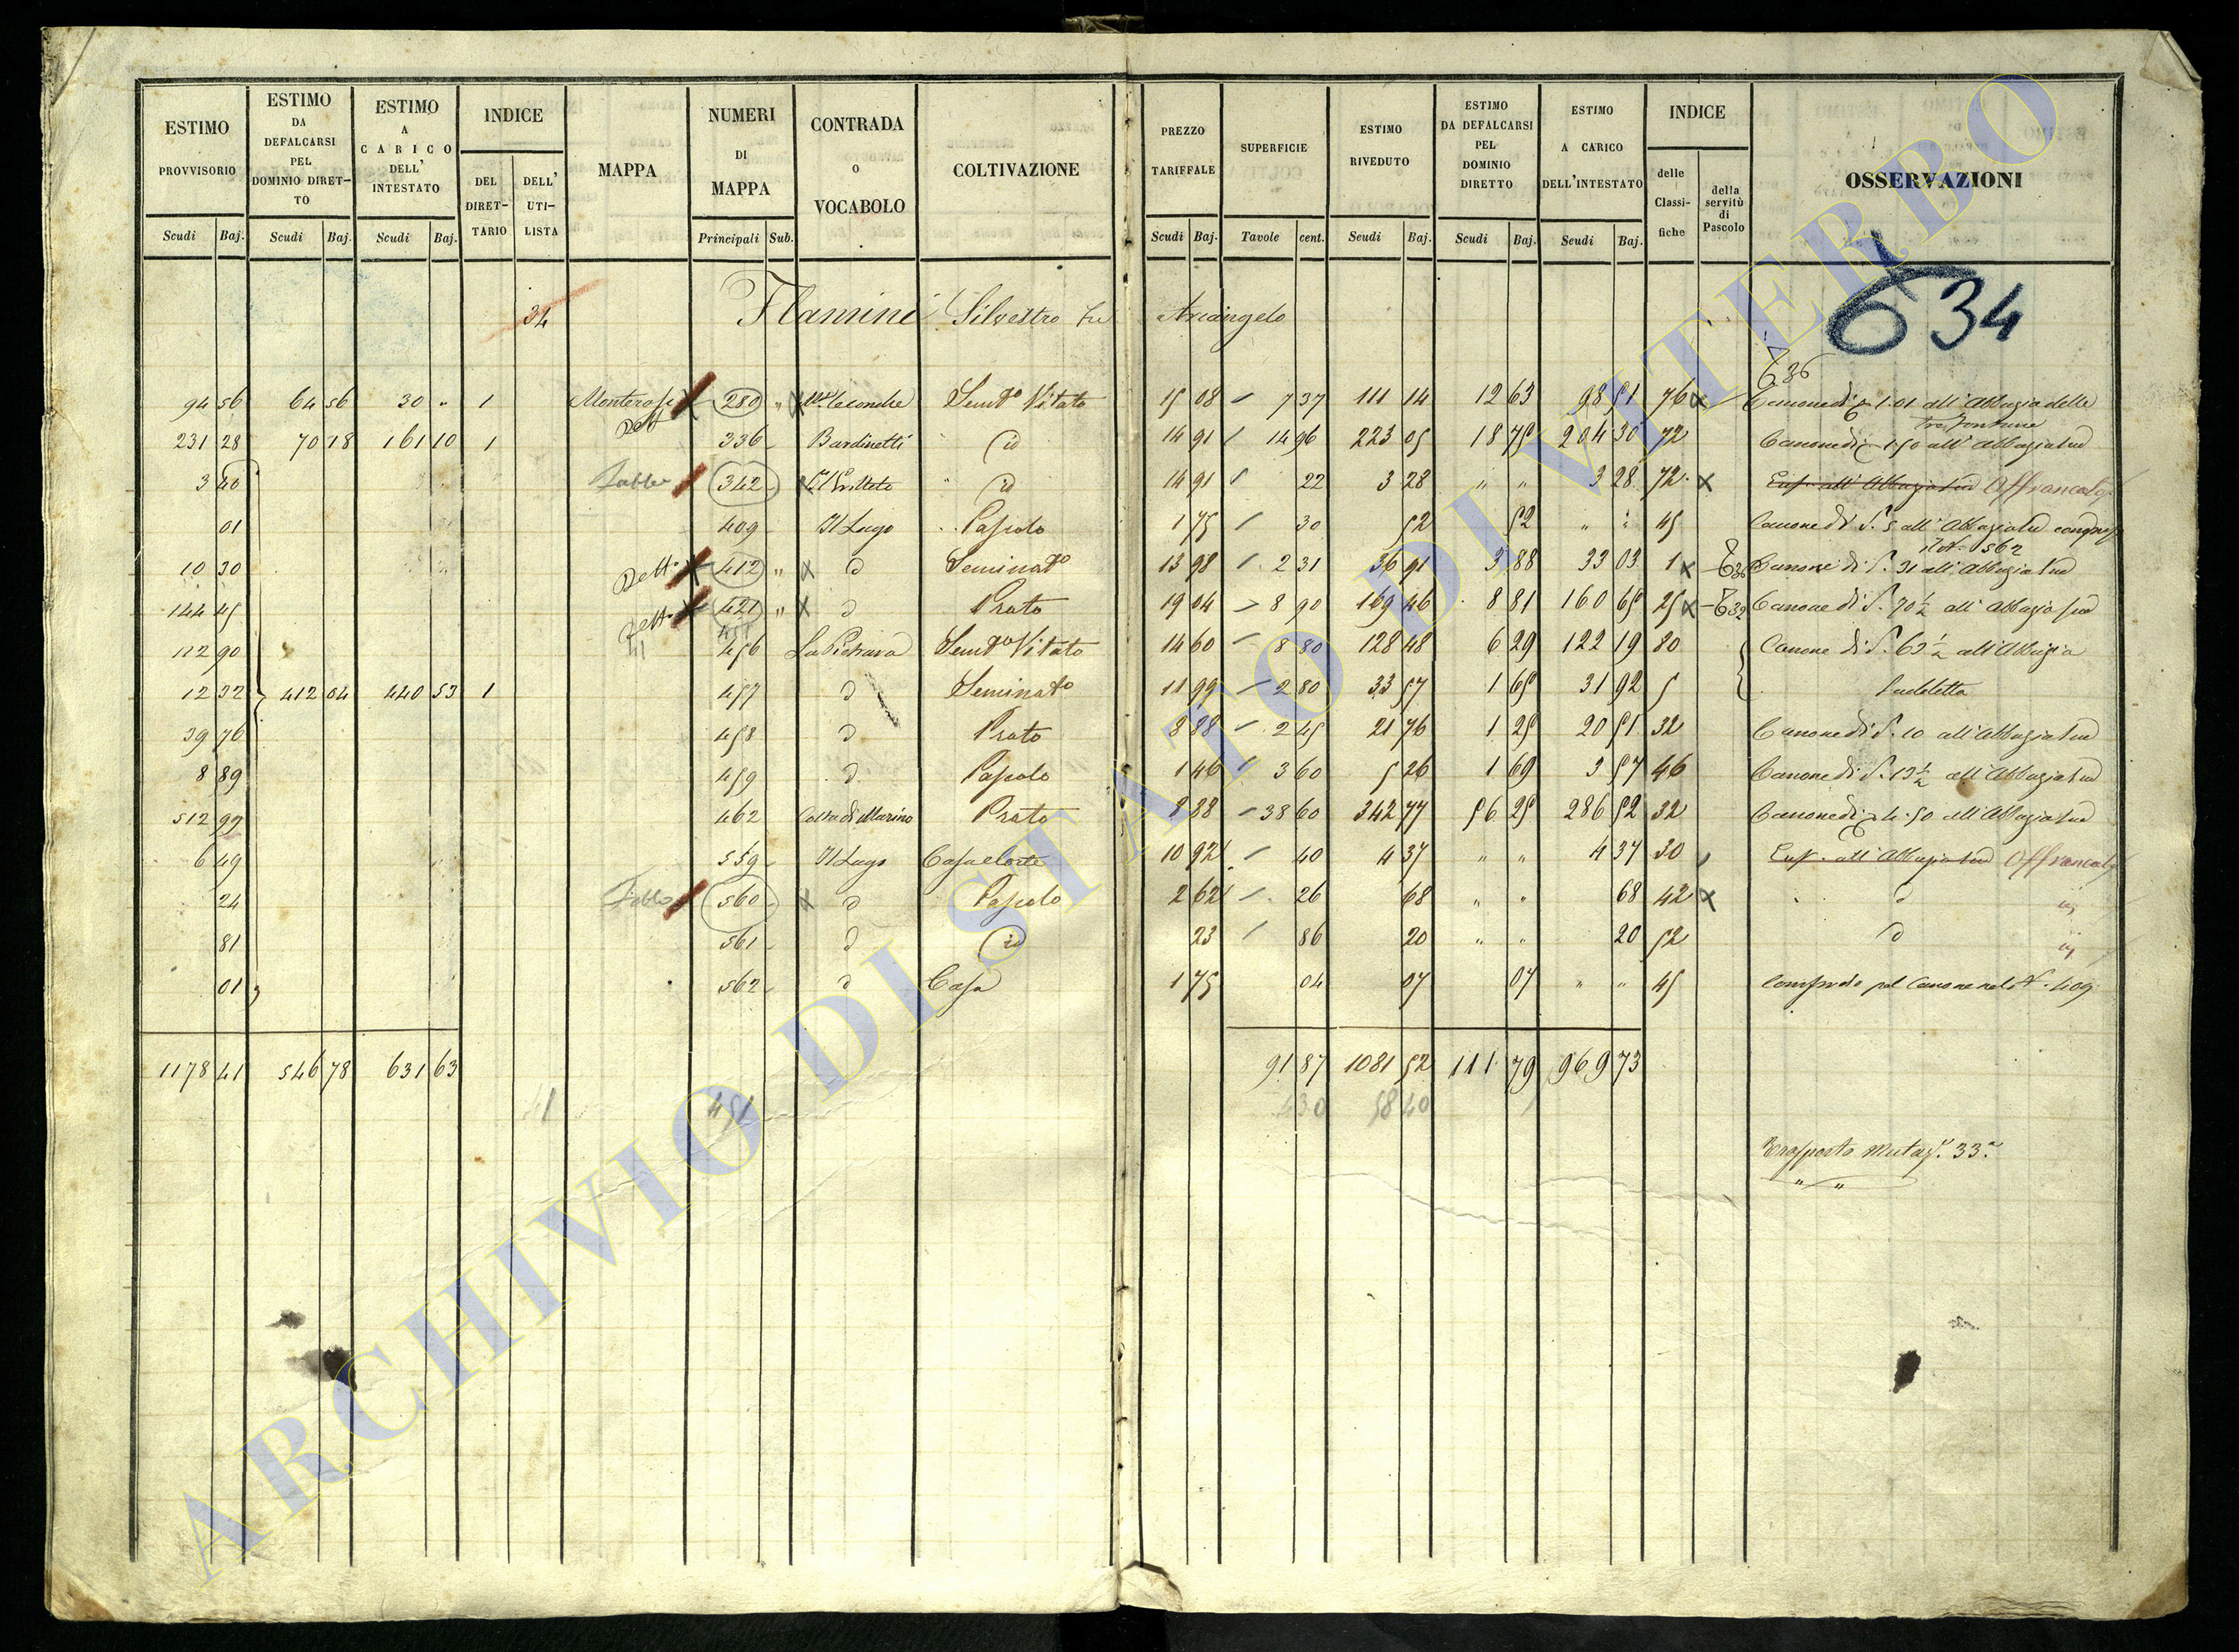 ESTIMO PROVVISORIO Scudi Baj.
ESTIMO DA DEFALCARSI PEL DOMINIO DIRET-TO Scudi Baj.
ESTIMO A CARICO DELL' INTESTATO Scudi Baj.
INDICE DEL DIRET-TARIO DELL' UTI-LISTA
MAPPA
NUMERI DI MAPPA Principali Sub.
CONTRADA O VOCABOLO
COLTIVAZIONE
PREZZO TARIFFALE Scudi Baj.
SUPERFICIE Tavole cent.
ESTIMO RIVEDUTO Scudi Baj.
ESTIMO DA DEFALCARSI PEL DOMINIO DIRETTO Scudi Baj.
ESTIMO A CARICO DELL'INTESTATO Scudi Baj.
INDICE delle Classi-fiche della servitù di Pascolo
OSSERVAZIONI
634
34 Flamini Silvestro fu Arcangelo
636
94 56 64 56 30 " 1 280 " Semto Vitato 15 08 7 37 111 14 12 63 98 51 76 x Canone di 1.01 all'Abbazia delle
Tre Fontane
231 28 70 18 161 10 1 Detto 336 Bardinetti id 14 91 14 96 223 05 18 75 204 30 72 Canone di 1.50 all'Abbazia sud
3 40 342 id 14 91 22 3 28 " " 3 28 72 x all'Abbazia sud Affrancato
01 409 Il Lago Pascolo 1 75 30 52 52 " " 45 Canone di S. 5 all'Abbazia sud
il N. 562
10 30 Detto 412 " x d Seminato 13 98 2 31 36 91 3 88 33 03 1 x 636 Canone di S. 31 all'Abbazia sud
144 45 Detto 421 " x d Prato 19 04 8 90 169 46 8 81 160 65 25 x 632 Canone di S. 70½ all'Abbazia sud
112 90 456 La Pietrara Semto Vitato 14 60 8 80 128 48 6 29 122 19 80 Canone di S. 63½ all'Abbazia
12 32 412 04 440 53 1 457 d Seminato 11 99 2 80 33 57 1 65 31 92 5 Sudetta
39 76 458 d Prato 8 88 2 45 21 76 1 25 20 51 32 Canone di S. 10 all'Abbazia sud
8 89 459 d Pascolo 1 46 3 60 5 26 1 69 3 57 46 Canone di S. 13½ all'Abbazia sud
512 99 462 Costa di Marino Prato 8 88 38 60 342 77 56 25 286 52 32 Canone di 4.50 all'Abbazia sud
6 49 559 Il Lago Casa e Corte 10 92 40 4 37 " " 4 37 30 all'Abbazia sud Affrancato
24 560 x d Pascolo 2 62 26 68 " " 68 42 x d
81 561 d id 23 86 20 " " 20 52 d
01 562 d Casa 1 75 04 07 07 " " 45 Compreso pel Canone nel N. 409
1178 41 546 78 631 63 91 87 1081 52 111 79 969 73
451 4 30 58 40
Trasporto Mutaz. 33
" "
ARCHIVIO DI STATO DI VITERBO